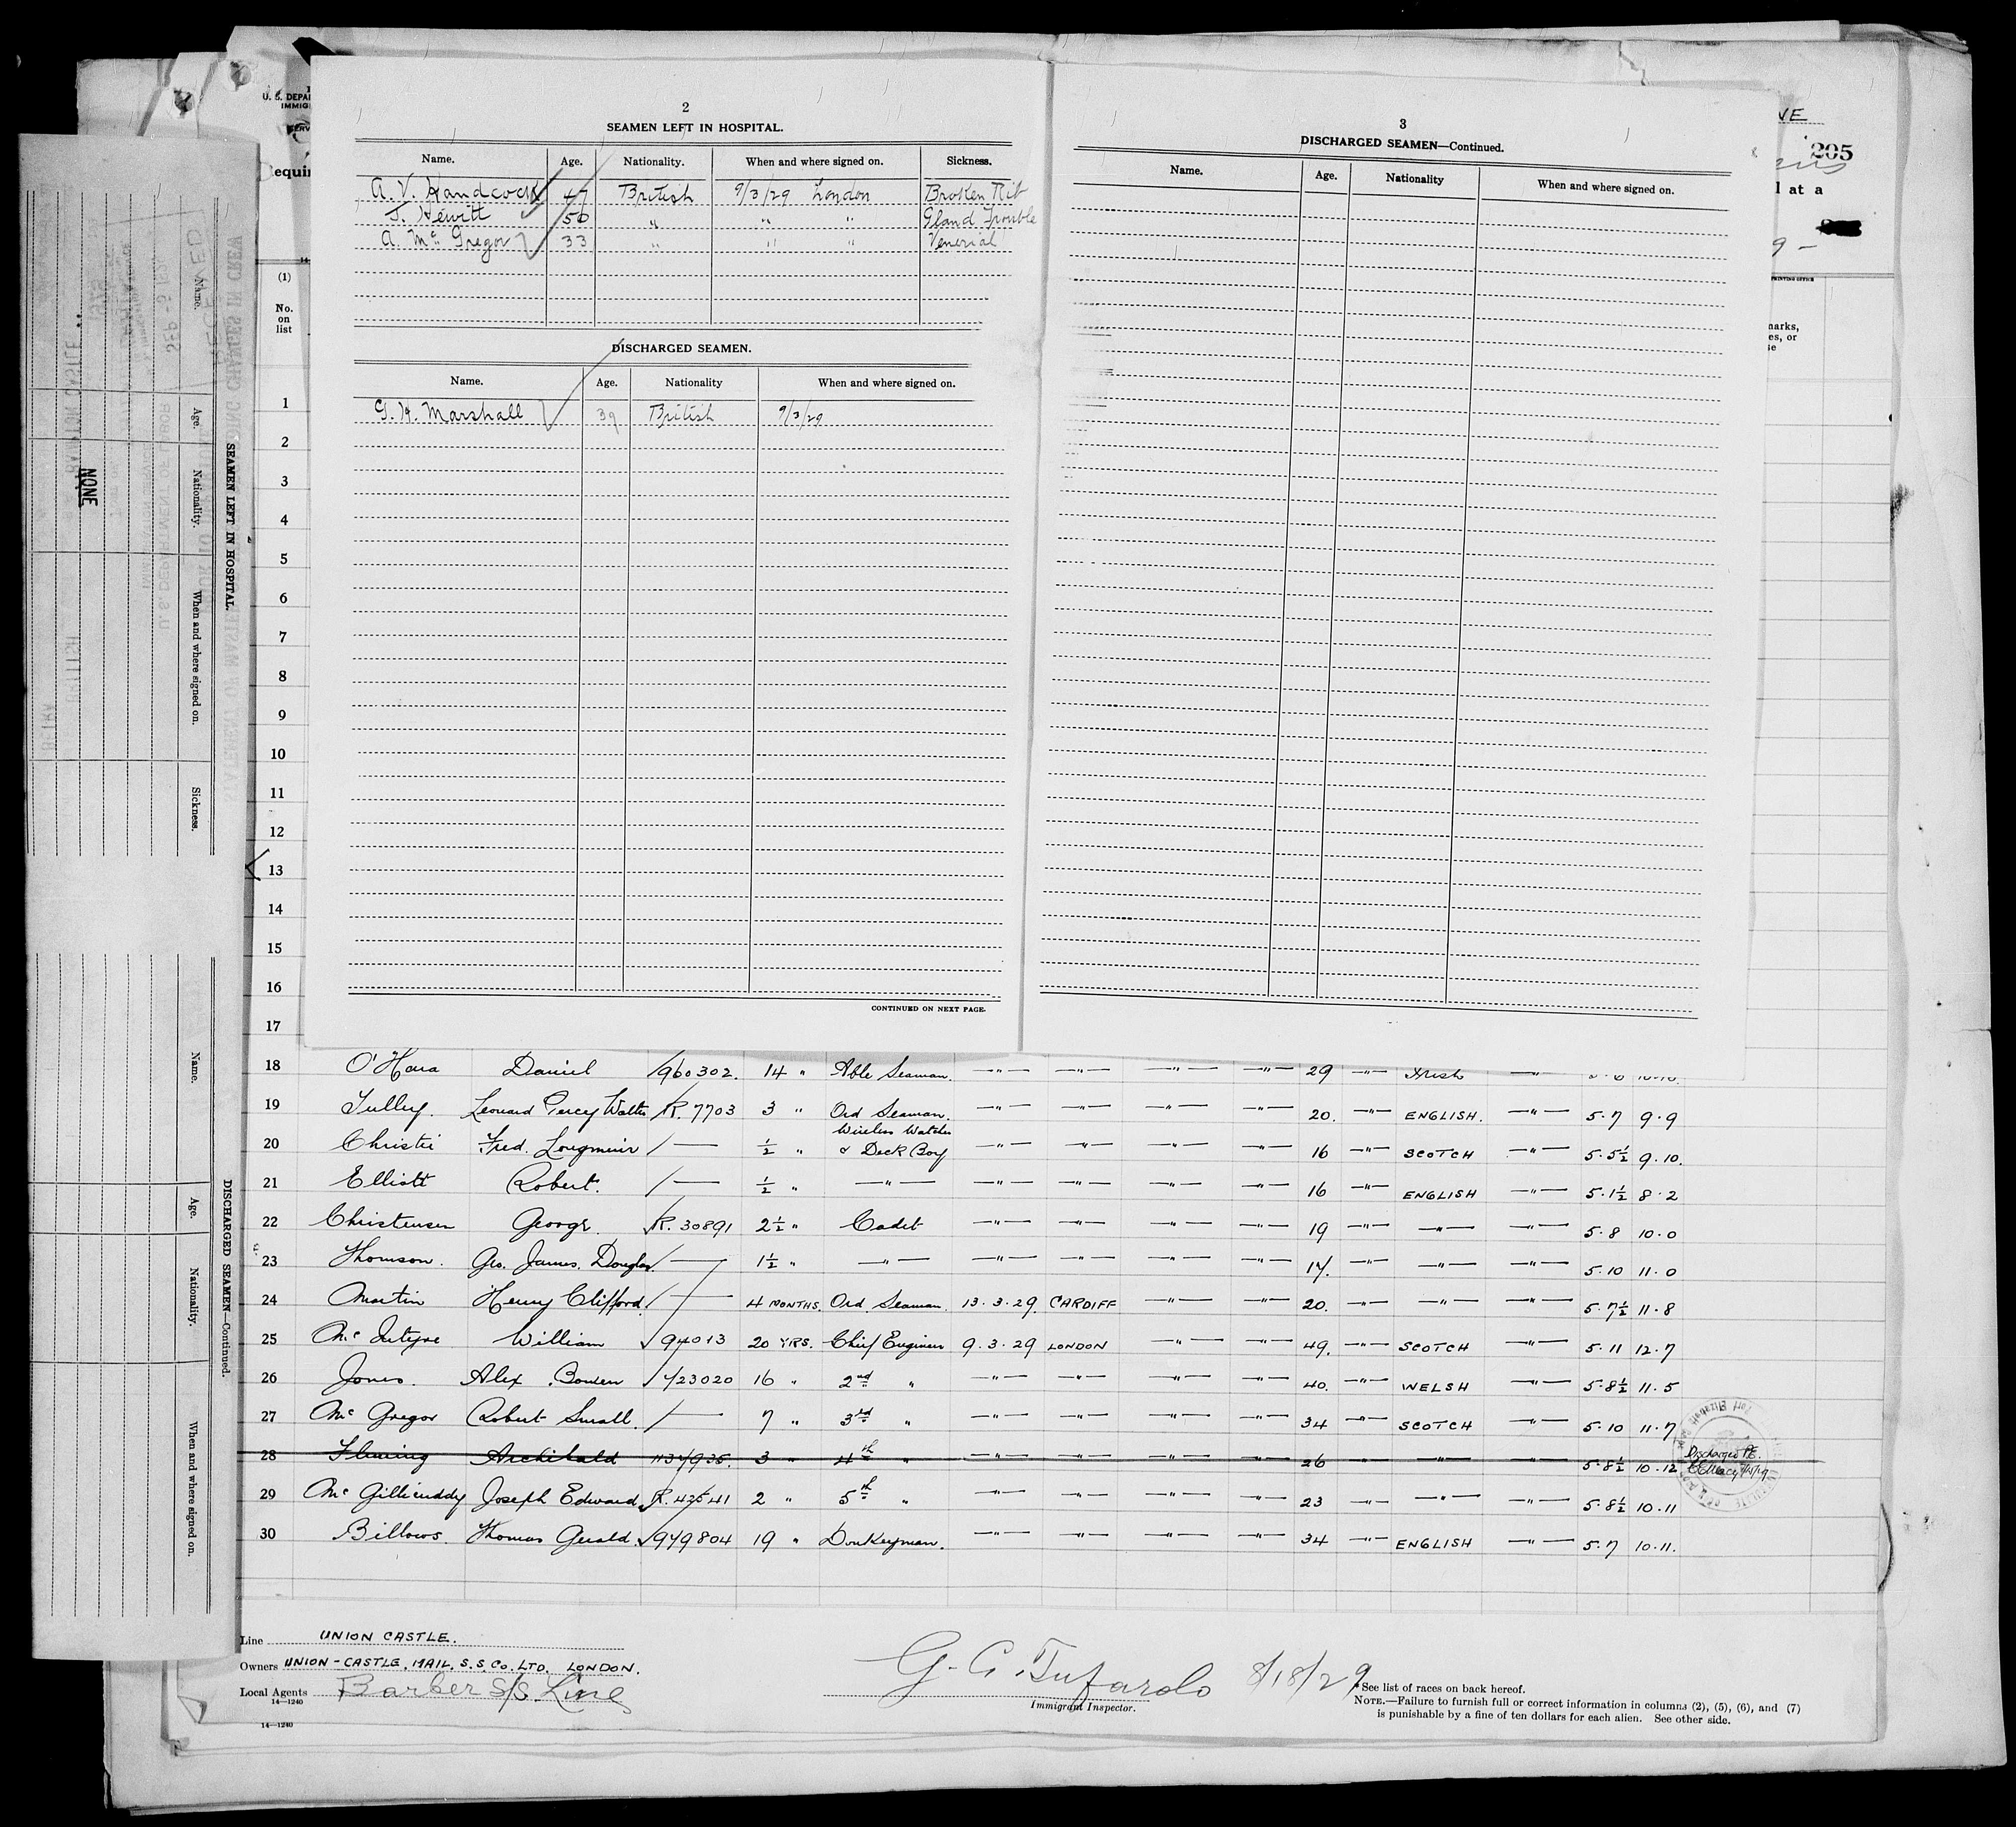 2
SEAMEN LEFT IN HOSPITAL.
Name. Age. Nationality. When and where signed on. Sickness.
A. V. Handcock 47 British 9/3/29 London Broken Rib
J. Hewitt 50 " " " Gland Trouble
A. McGregor 33 " " " Venerial
DISCHARGED SEAMEN.
Name. Age. Nationality When and where signed on.
G. H. Marshall 39 British 9/3/29
CONTINUED ON NEXT PAGE.
3
DISCHARGED SEAMEN—Continued.
Name. Age. Nationality When and where signed on.
U. S. DEPA
IMMIG
equir
205
l at a
PRINTING OFFICE
marks,
es, or
se
(1)
No.
on
list
1
2
3
4
5
6
7
8
9
10
11
12
13
14
15
16
17
18 O'Hara Daniel 960302. 14 " Able Seaman. —"— —"— —"— —"— 29 —"— Irish —"—
19 Tulley. Leonard Percy Walter R. 7703 3 " Ord Seaman. —"— —"— —"— —"— 20. —"— ENGLISH. —"— 5.7 9.9
Wireless Watcher
20 Christie Fred. Longmuir — ½ " & Deck Boy —"— —"— —"— —"— 16 —"— SCOTCH —"— 5.5½ 9.10.
21 Elliott Robert. — ½ " —"— —"— —"— —"— —"— 16 —"— ENGLISH —"— 5.1½ 8.2
22 Christensen George. R. 30891 2½ " Cadet —"— —"— —"— —"— 19 —"— —"— —"— 5.8 10.0
23 Thomson. Geo. James. Douglas. — 1½ " —"— —"— —"— —"— —"— 17. —"— —"— —"— 5.10 11.0
24 Martin Henry Clifford. — 4 MONTHS. Ord. Seaman. 13.3.29. CARDIFF —"— —"— 20. —"— —"— —"— 5.7½ 11.8
25 McIntyre William 94013 20 YRS. Chief Engineer 9.3.29 LONDON —"— —"— 49. —"— SCOTCH —"— 5.11 12.7
26 Jones. Alex Bowen 723020 16 " 2nd " —"— —"— —"— —"— 40. —"— WELSH —"— 5.8½ 11.5
27 McGregor Robert Small. — 7 " 3rd " —"— —"— —"— —"— 34 —"— SCOTCH —"— 5.10 11.7
28 Fleming Archibald 1137935. 3 " 4th " —"— —"— —"— —"— 26 —"— —"— —"— 5.8½ 10.12 Discharged P.E.
29 McGillicuddy Joseph Edward R. 42541 2 " 5th " —"— —"— —"— —"— 23 —"— —"— —"— 5.8½ 10.11
30 Billows. Thomas Gerald. 949804 19 " Donkeyman. —"— —"— —"— —"— 34 —"— ENGLISH —"— 5.7 10.11.
Port Elizabeth
Line UNION CASTLE.
Owners UNION-CASTLE, MAIL, S.S. Co. LTD. LONDON.
Local Agents Barber S/S Line
14—1240
14—1240
G. C. Tufarolo 8/18/29
Immigrant Inspector.
See list of races on back hereof.
NOTE.—Failure to furnish full or correct information in columns (2), (5), (6), and (7)
is punishable by a fine of ten dollars for each alien. See other side.
SEAMEN LEFT IN HOSPITAL.
Name. Age. Nationality. When and where signed on. Sickness.
NONE
DISCHARGED SEAMEN—Continued.
Name. Age. Nationality. When and where signed on.